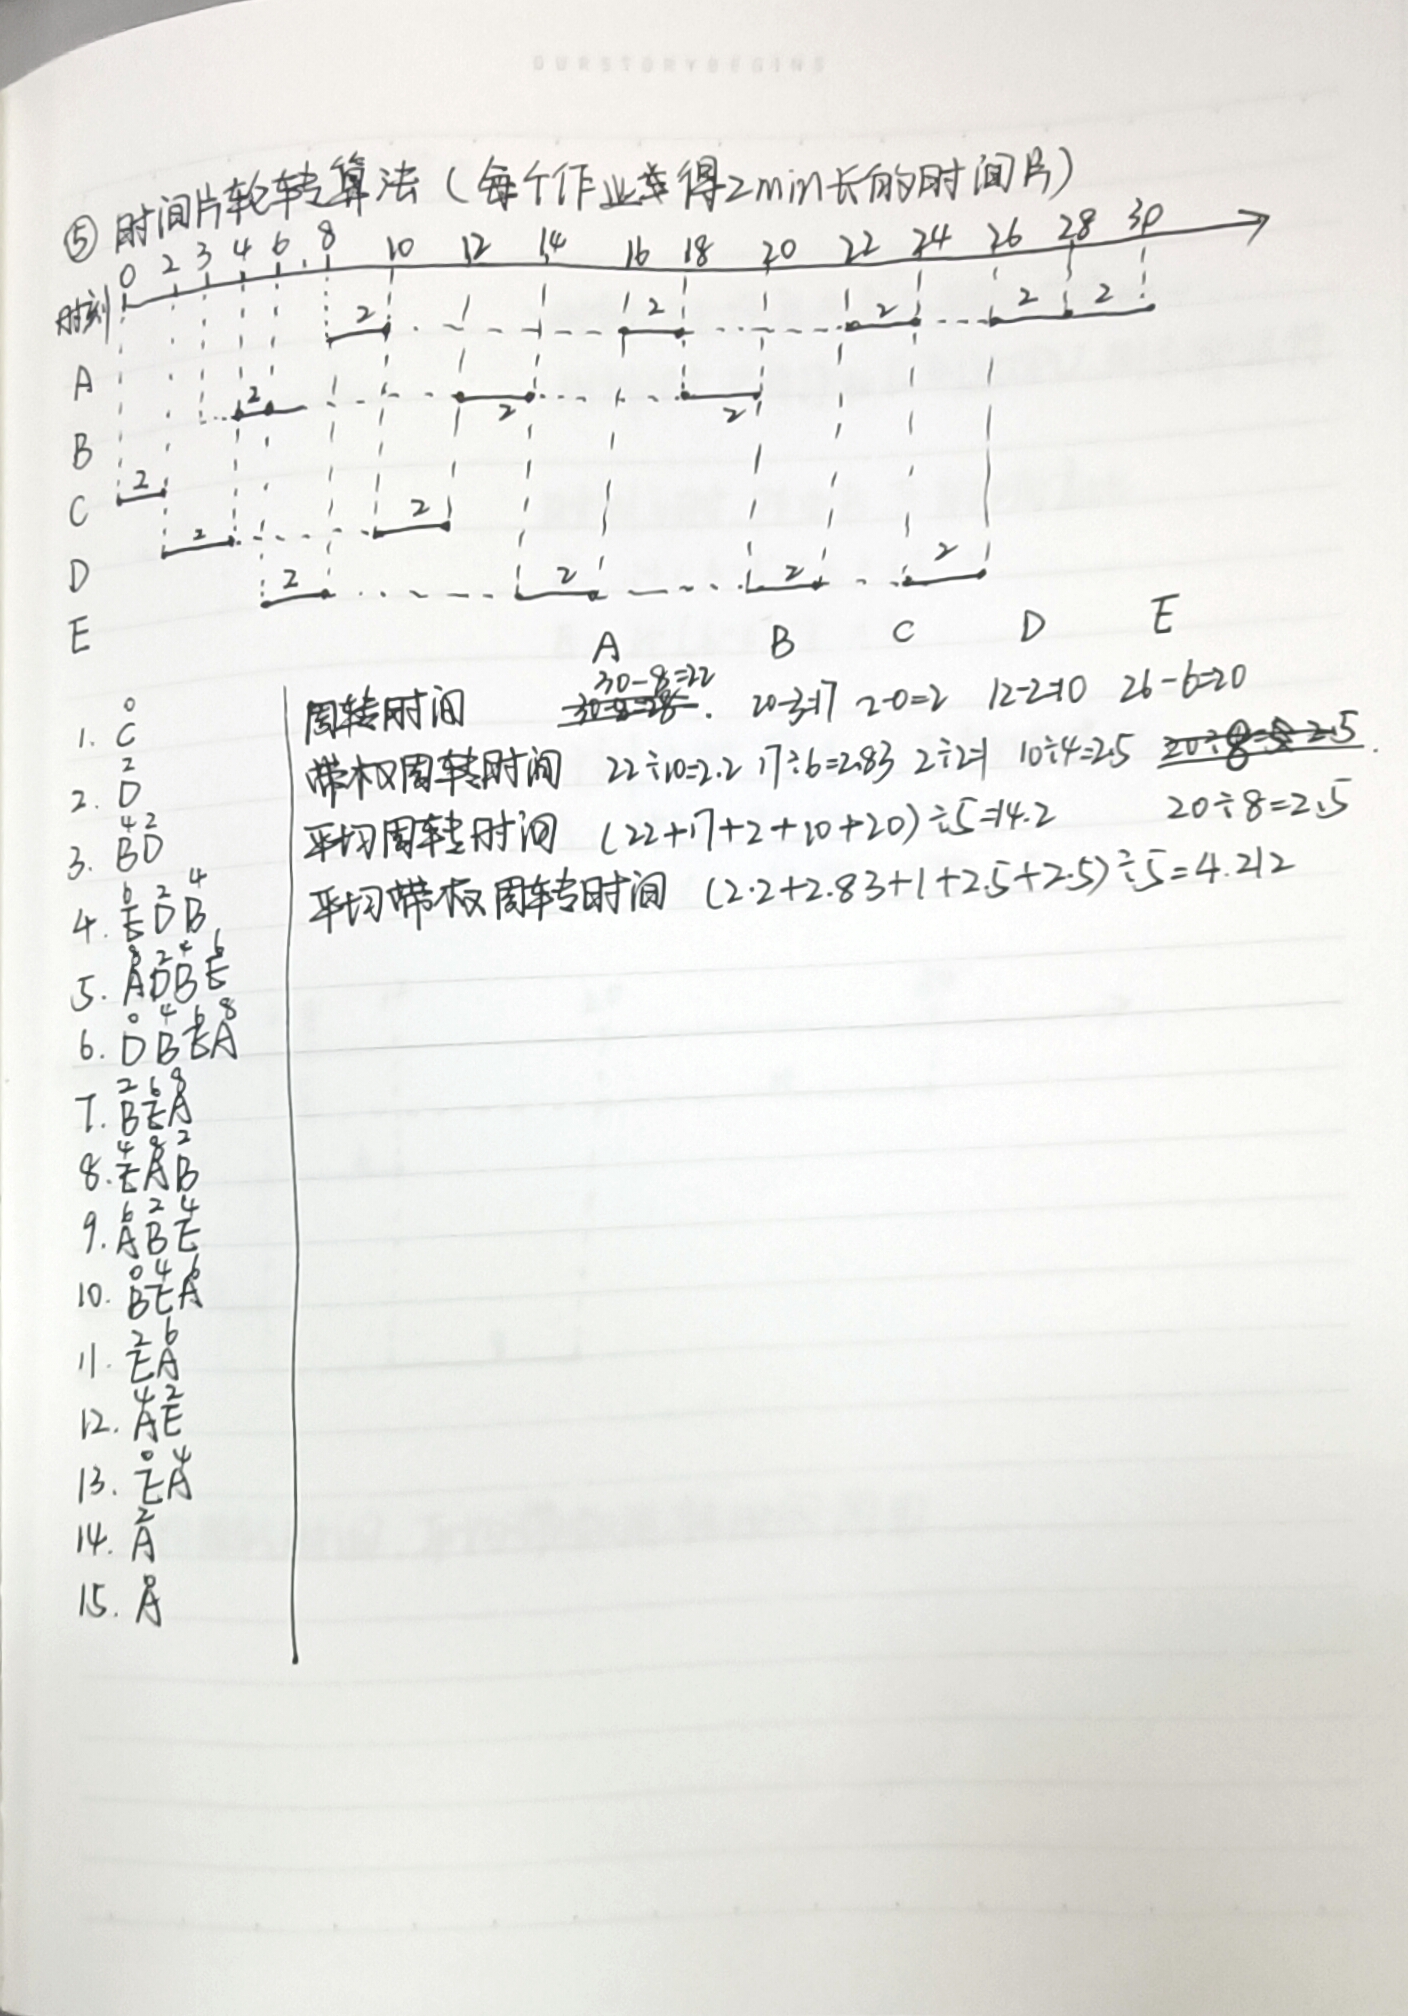 OUR STORY BEGINS
⑤ 时间片轮转算法（每个作业获得2min长的时间片）
时刻 0 2 3 4 6 8 10 12 14 16 18 20 22 24 26 28 30
A 2 2 2 2 2
B 2 2 2
C 2
D 2 2
E 2 2 2 2
A B C D E
周转时间 30-8=22 20-3=17 2-0=2 12-2=10 26-6=20
带权周转时间 22÷10=2.2 17÷6=2.83 2÷2=1 10÷4=2.5 20÷8=2.5
平均周转时间 (22+17+2+10+20)÷5=14.2
平均带权周转时间 (2.2+2.83+1+2.5+2.5)÷5=4.212
0
1. C
2
2. D
4 2
3. B D
6 2 4
4. E D B
8 2 4 6
5. A D B E
0 4 6 8
6. D B E A
2 6 8
7. B E A
4 8 2
8. E A B
6 2 4
9. A B E
0 4 6
10. B E A
2 6
11. E A
4 2
12. A E
0 4
13. E A
2
14. A
0
15. A